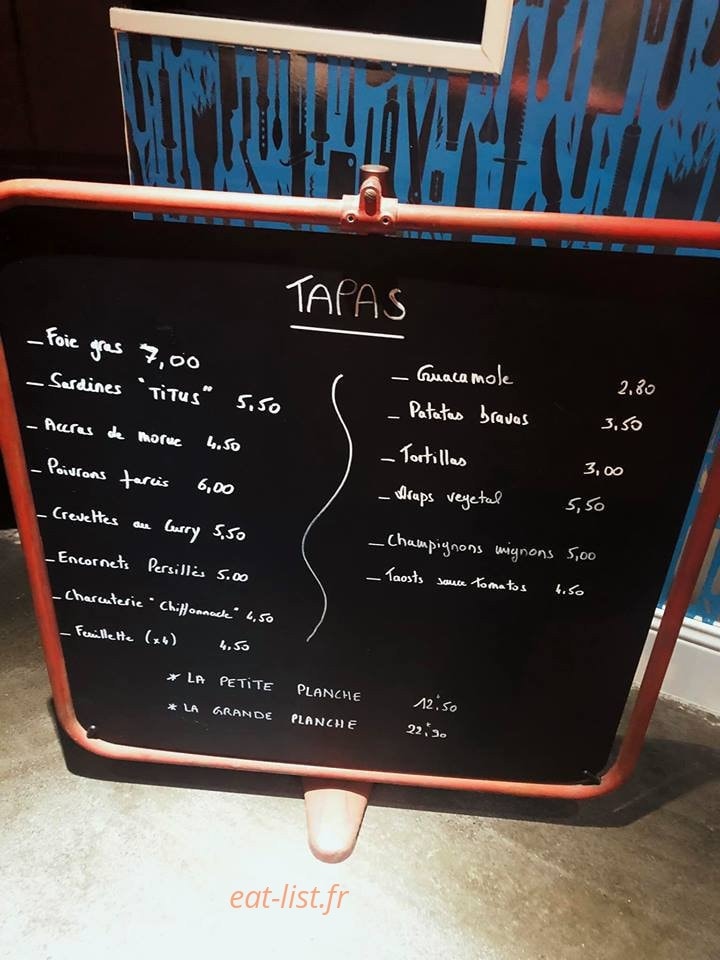 TAPAS
- Foie gras 7,00
- Sardines "TITUS" 5,50
- Accras de morue 4,50
- Poivrons farcis 6,00
- Crevettes au Curry 5,50
- Encornets Persillés 5,00
- Charcuterie "Chiffonnade" 4,50
- Feuillette (x4) 4,50
- Guacamole 2,80
- Patatas bravas 3,50
- Tortillas 3,00
- Wraps vegetal 5,50
- Champignons mignons 5,00
- Taosts sauce Tomatos 4,50
* LA PETITE PLANCHE 12,50
* LA GRANDE PLANCHE 22,90
eat-list.fr